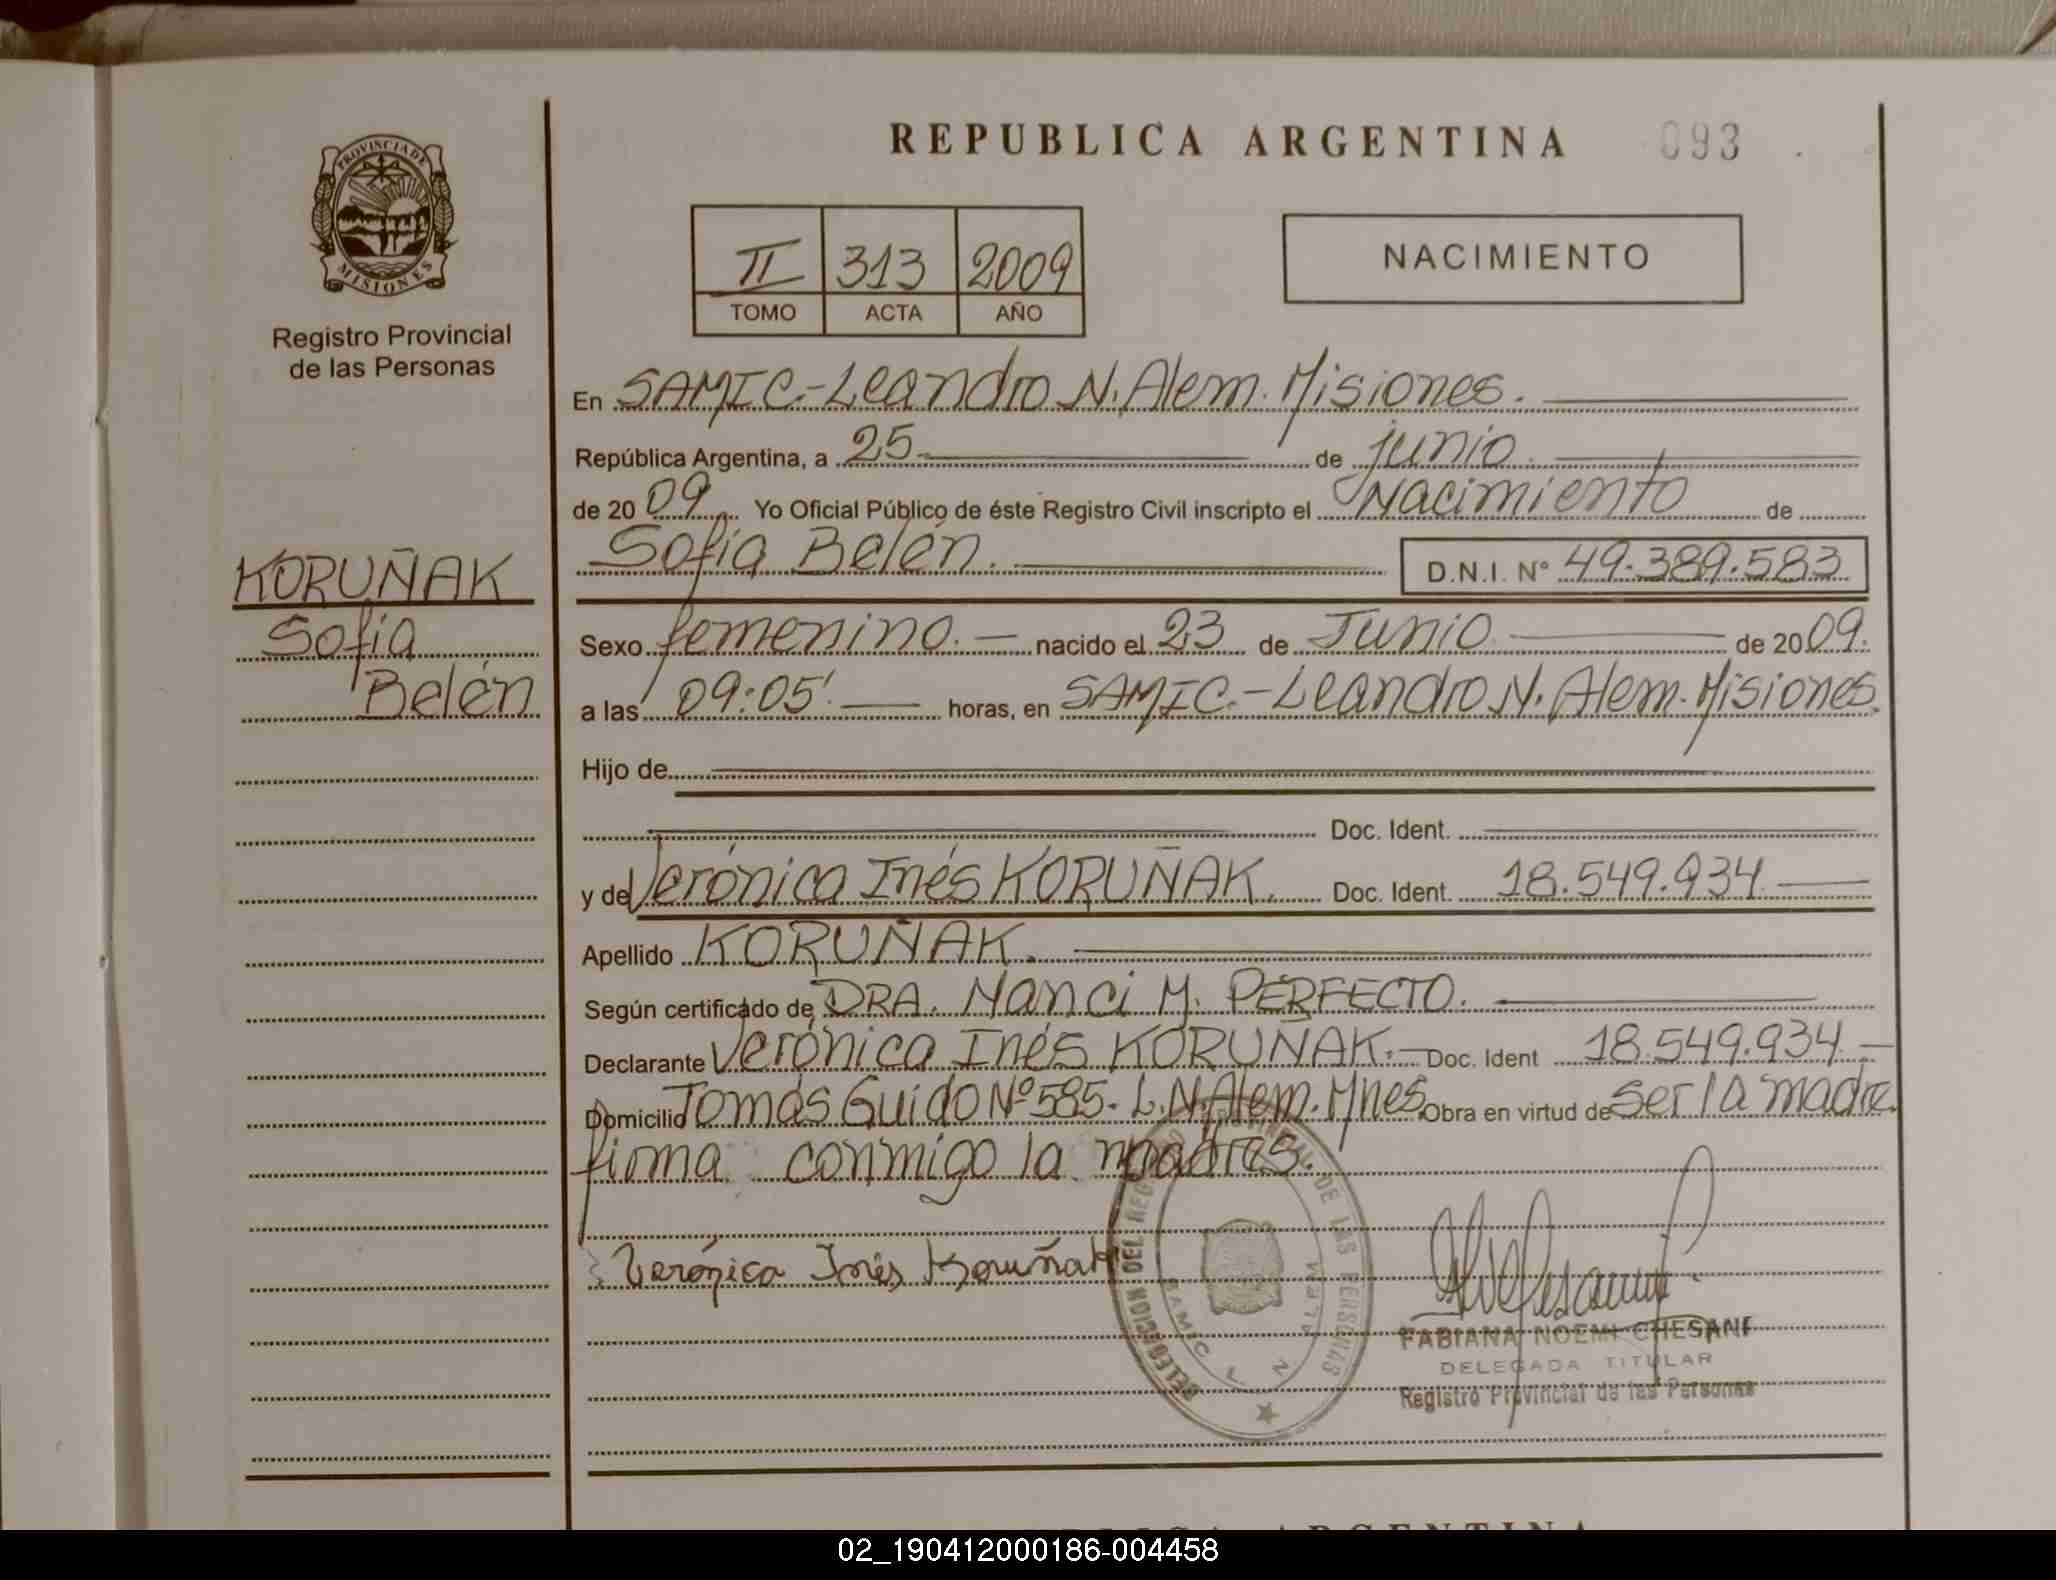 REPUBLICA ARGENTINA 093
PROVINCIA DE
MISIONES
Registro Provincial
de las Personas
II 313 2009
TOMO ACTA AÑO
NACIMIENTO
En SAMIC.-Leandro N. Alem. Misiones.
República Argentina, a 25 de junio.
de 2009. Yo Oficial Público de éste Registro Civil inscripto el Nacimiento de
Sofía Belén. D.N.I. Nº 49.389.583
KORUÑAK
Sofía
Belén
Sexo femenino. nacido el 23 de Junio de 2009.
a las 09:05' horas, en SAMIC.-Leandro N. Alem. Misiones.
Hijo de
Doc. Ident.
y de Verónica Inés KORUÑAK. Doc. Ident. 18.549.934
Apellido KORUÑAK.
Según certificado de DRA. Nanci M. PERFECTO.
Declarante Verónica Inés KORUÑAK.- Doc. Ident 18.549.934.-
Domicilio Tomás Guido Nº 585. L.N. Alem. Mnes. Obra en virtud de ser la madre.
firma conmigo la madres.
Verónica Inés Koruñak
DELEGACION DEL REGISTRO PROVINCIAL DE LAS PERSONAS
SAMIC L N ALEM
FABIANA NOEMI CHESANI
DELEGADA TITULAR
Registro Provincial de las Personas
02_190412000186-004458